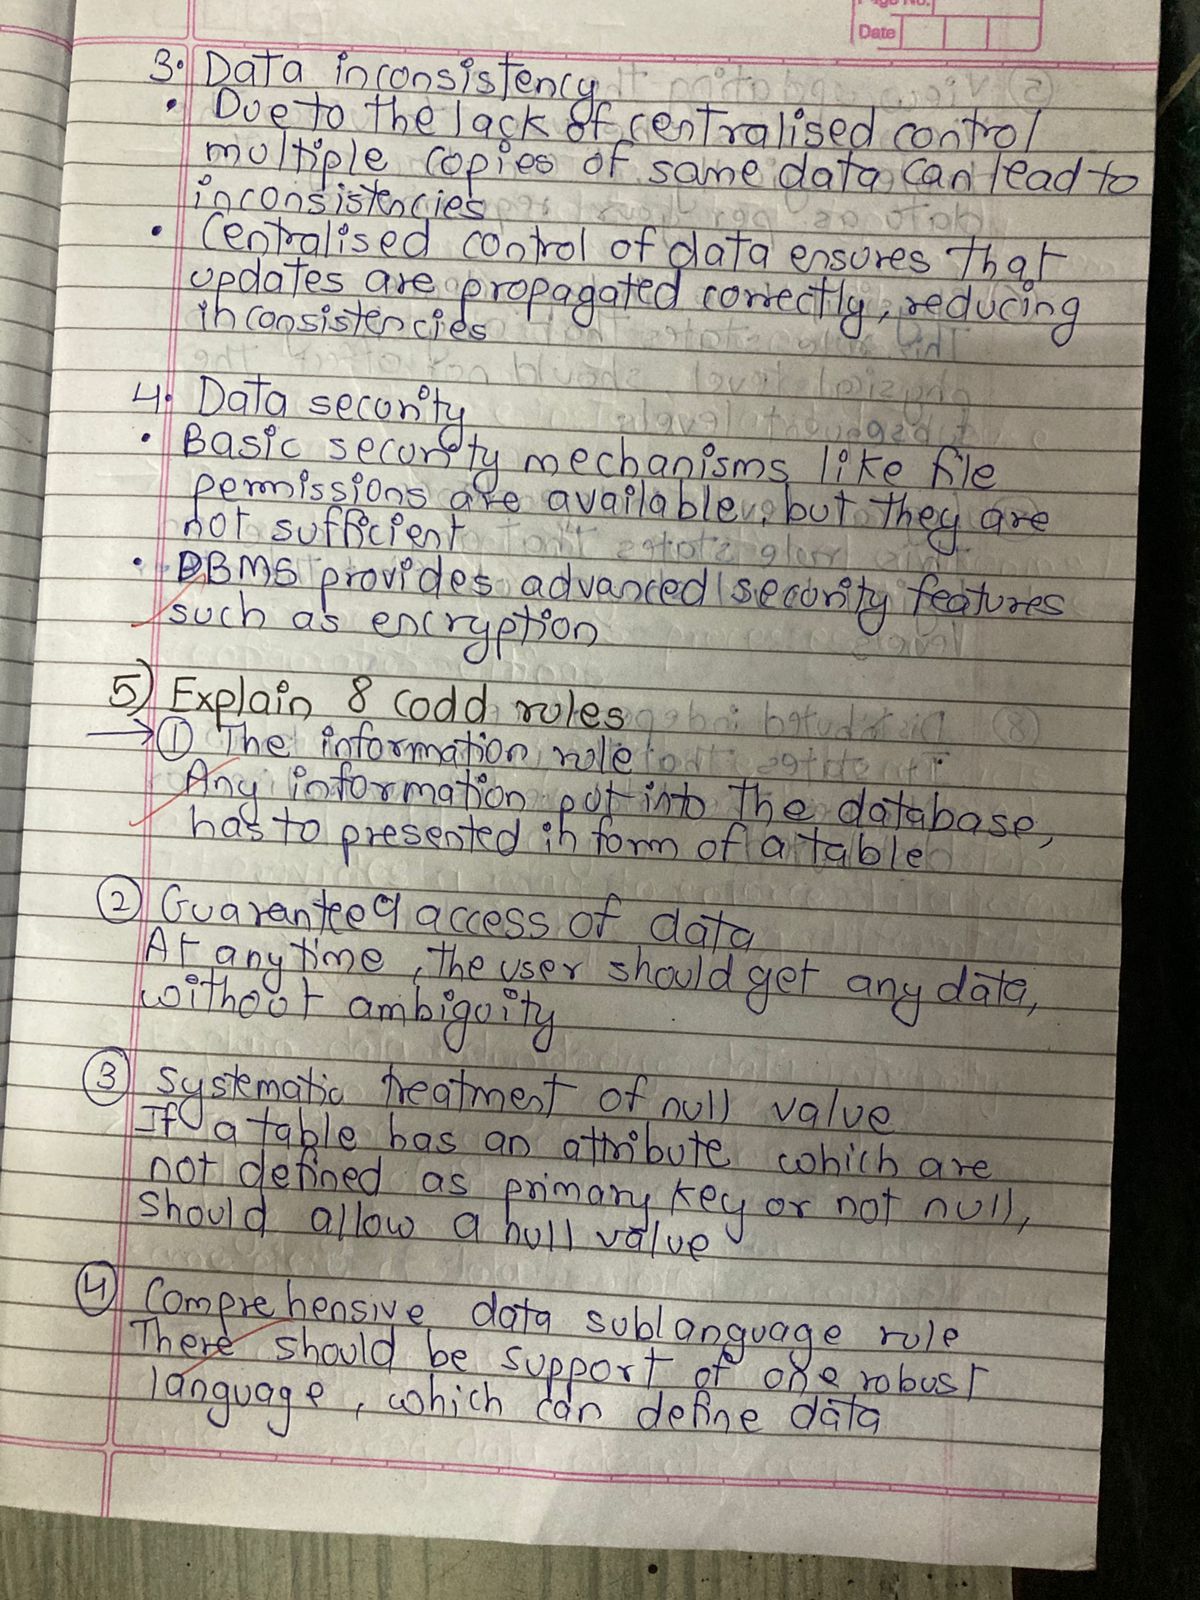 Page No.
Date
3. Data inconsistency
• Due to the lack of centralised control
multiple copies of same data can lead to
inconsistencies
• Centralised control of data ensures that
updates are propagated correctly, reducing
inconsistencies
4. Data security
• Basic security mechanisms like file
permissions are available, but they are
not sufficient
• DBMS provides advanced security features
such as encryption
5) Explain 8 codd rules
→ ① The information rule
Any information put into the database,
has to presented in form of a table
② Guaranteed access of data
At any time, the user should get any data,
without ambiguity
③ Systematic treatment of null value
If a table has an attribute which are
not defined as primary key or not null,
should allow a null value
④ Comprehensive data sublanguage rule
There should be support of one robust
language, which can define data